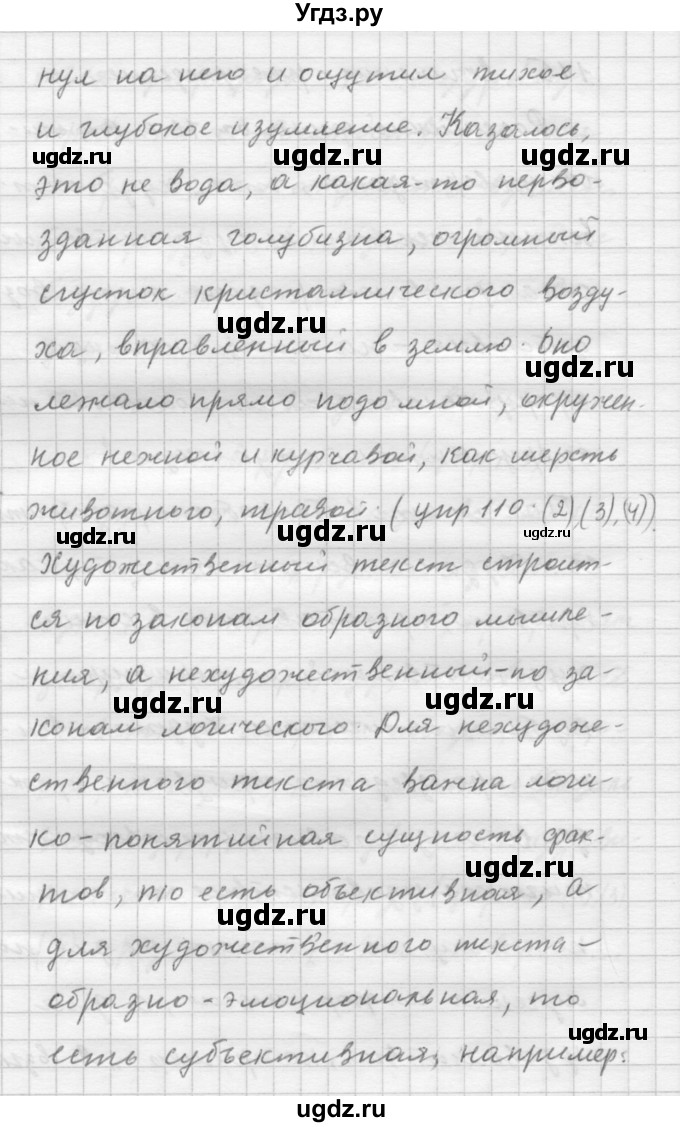 Угдз.ру
нул на него и ощутил тихое
и глубокое изумление. Казалось,
ugdz.ru ugdz.ru ugdz.ru
это не вода, а какая-то перво-
зданная голубизна, огромный
сгусток кристаллического возду-
ugdz.ru
ха, вправленный в землю. Оно
ugdz.ru
лежало прямо подо мной, окружен-
ное нежной и курчавой, как шерсть
животного, травой. (упр 110. (2),(3),(4)).
ugdz.ru
Художественный текст строит-
ся по законам образного мышле-
ния, а нехудожественный-по за-
ugdz.ru ugdz.ru
конам логического. Для нехудоже-
ственного текста важна логи-
ко-понятийная сущность фак-
ugdz.ru
тов, то есть объективная, а
ugdz.ru
для художественного текста-
образно-эмоциональная, то
ugdz.ru
есть субъективная, например:
ugdz.ru